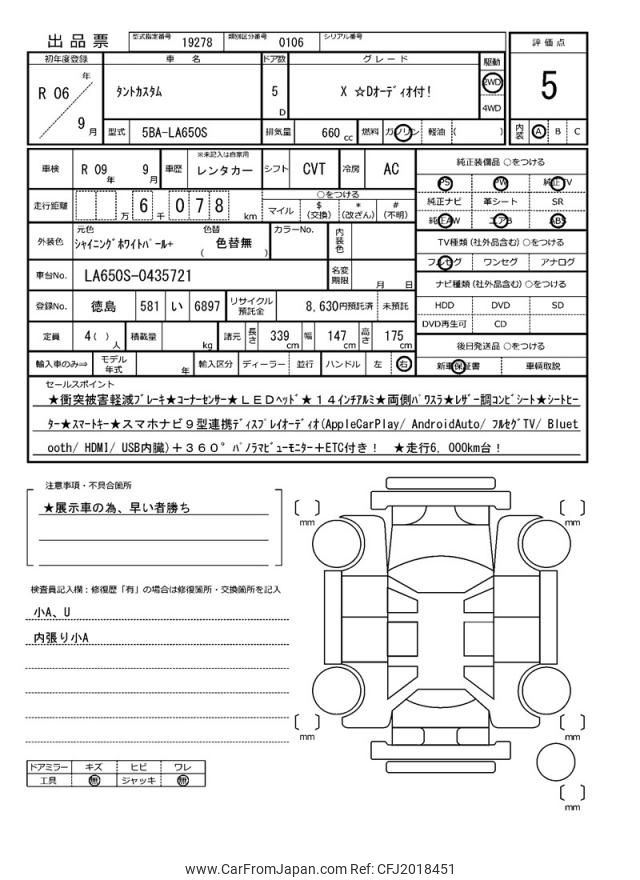 出品票 型式指定番号 19278 類別区分番号 0106 シリアル番号
初年度登録 車名 ドア数 グレード 駆動 評価点
R 06 年 9 月 タントカスタム 5 D X ☆Dオーディオ付! 2WD 4WD 5
型式 5BA-LA650S 排気量 660 cc 燃料 ガソリン 軽油 ( ) 内装 A B C
車検 R 09 年 9 月 車歴 ※未記入は自家用 レンタカー シフト CVT 冷房 AC 純正装備品 ○をつける
PS PW 純正TV
走行距離 万 6 千 0 7 8 km ○をつける マイル $ (交換) * (改ざん) # (不明) 純正ナビ 革シート SR
純正AW エアB ABS
外装色 元色 シャイニングホワイトパール+ 色替 ( 色替無 ) カラーNo. 内装色 TV種類 (社外品含む) ○をつける
フルセグ ワンセグ アナログ
車台No. LA650S-0435721 名変期限 月 日 ナビ種類 (社外品含む) ○をつける
登録No. 徳島 581 い 6897 リサイクル預託金 8,630円預託済 未預託 HDD DVD SD
DVD再生可 CD
定員 4( ) 人 積載量 kg 諸元 長さ 339 cm 幅 147 cm 高さ 175 cm 後日発送品 ○をつける
輸入車のみ⇒ モデル年式 年 輸入区分 ディーラー 並行 ハンドル 左 右 新車保証書 車輌取説
セールスポイント
★衝突被害軽減ブレーキ★コーナーセンサー★ＬＥＤヘッド★１４インチアルミ★両側パワスラ★レザー調コンビシート★シートヒー
ター★スマートキー★スマホナビ９型連携ディスプレイオーディオ(AppleCarPlay/ AndroidAuto/ フルセグTV/ Bluet
ooth/ HDMI/ USB内臓)＋３６０° パノラマビューモニター＋ETC付き! ★走行6, 000km台!
注意事項・不具合箇所
★展示車の為、早い者勝ち
検査員記入欄：修復歴「有」の場合は修復箇所・交換箇所を記入
小A、U
内張り小A
mm
mm
mm
mm
mm
ドアミラー キズ ヒビ ワレ
工具 無 ジャッキ 無
www.CarFromJapan.com Ref: CFJ2018451